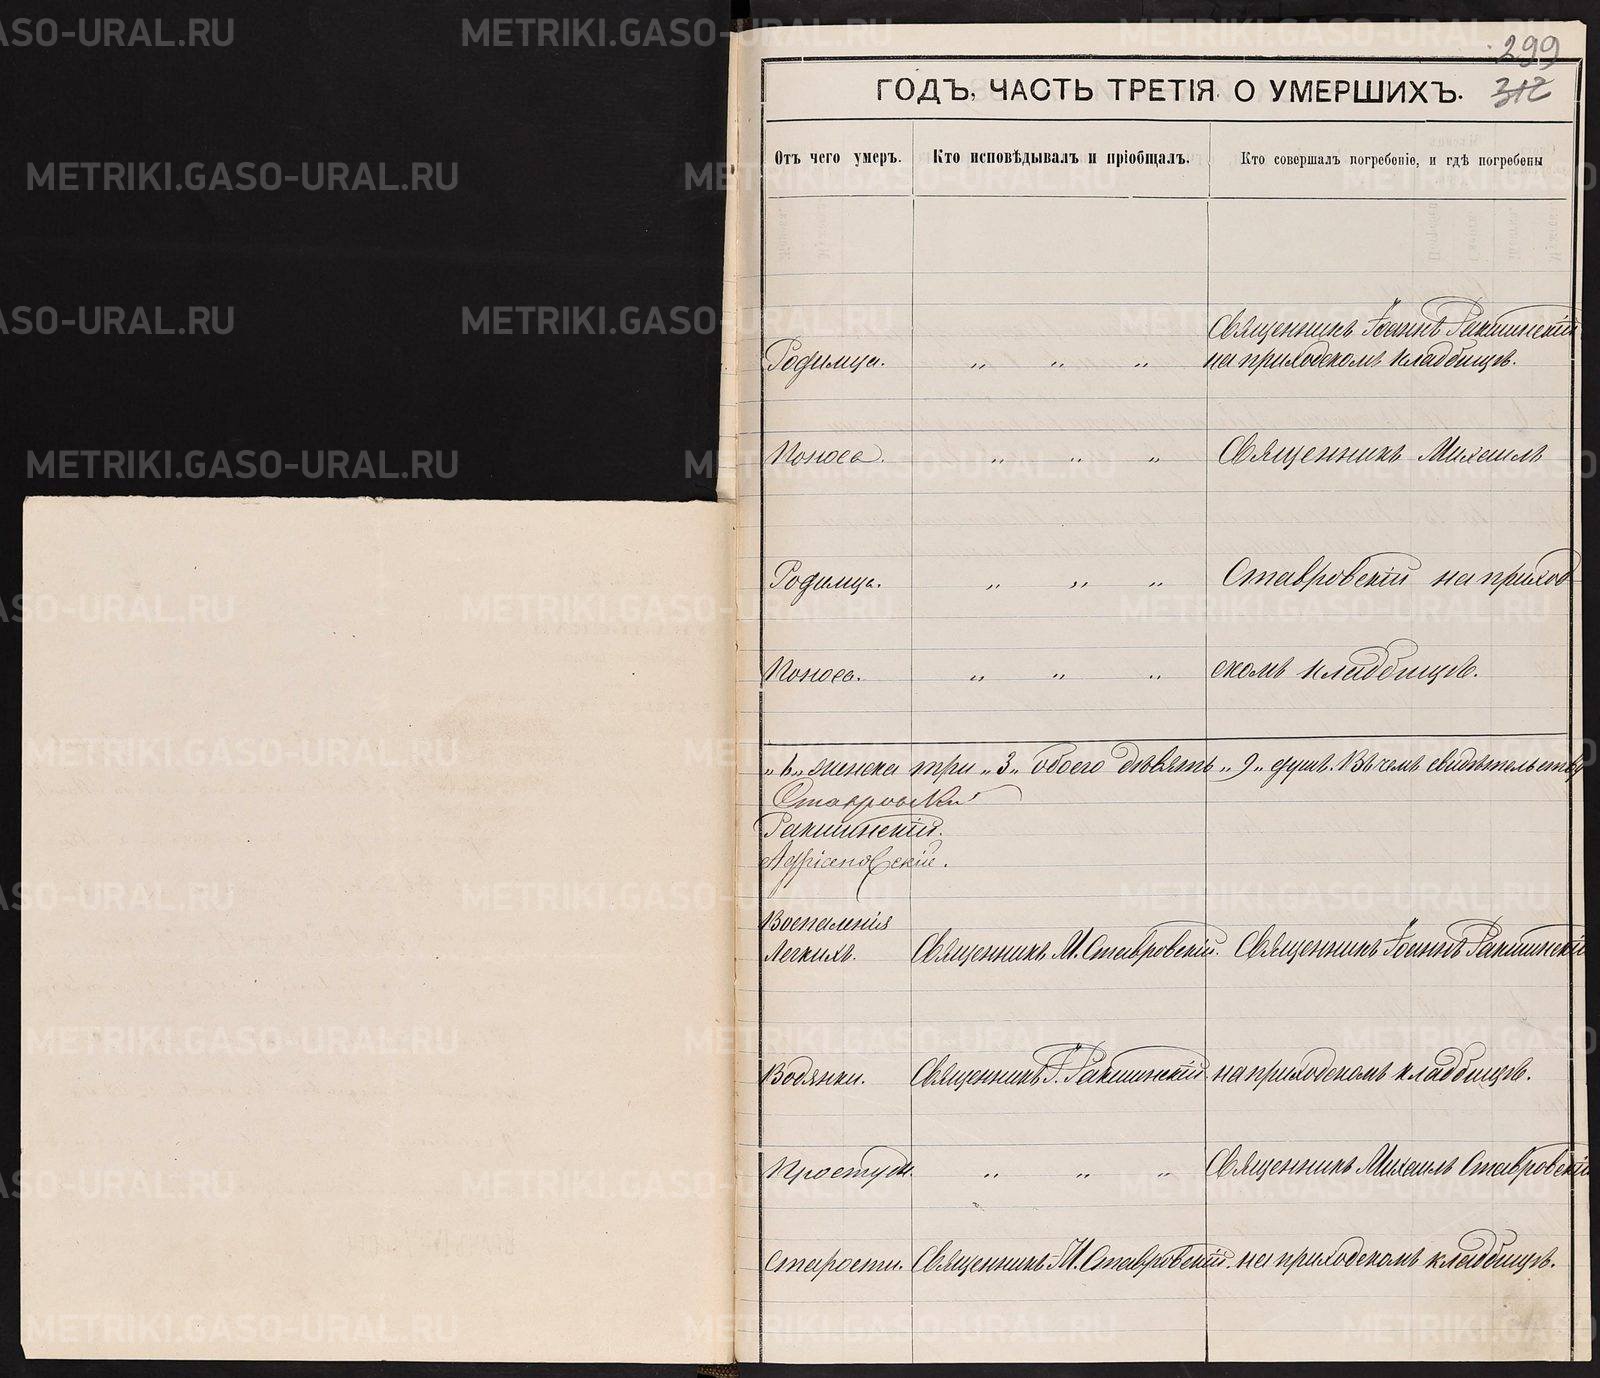 299
312
ГОДЪ, ЧАСТЬ ТРЕТІЯ О УМЕРШИХЪ.
Отъ чего умеръ. Кто исповѣдывалъ и пріобщалъ. Кто совершалъ погребеніе, и гдѣ погребены
Священникъ Іоаннъ Ракшинскій
Родимца. „ „ „ на приходскомъ кладбищѣ.
Поноса. „ „ „ Священникъ Михаилъ
Родимца. „ „ „ Ставровскій на приход
Поноса. „ „ „ скомъ кладбищѣ.
„6„ женска три „3„ обоего дѣвять „9„ душъ. Въ чемъ свидѣтельству
Ставровскій
Ракшинскій.
Адріановскій.
Воспаленія
Легкихъ. Священникъ М. Ставровскій. Священникъ Іоаннъ Ракшинскій
Водянки. Священникъ І. Ракшинскій. на приходскомъ кладбищѣ.
Простуды. „ „ „ Священникъ Михаилъ Ставровскій
Старости. Священникъ М. Ставровскій. на приходскомъ кладбищѣ.
METRIKI.GASO-URAL.RU